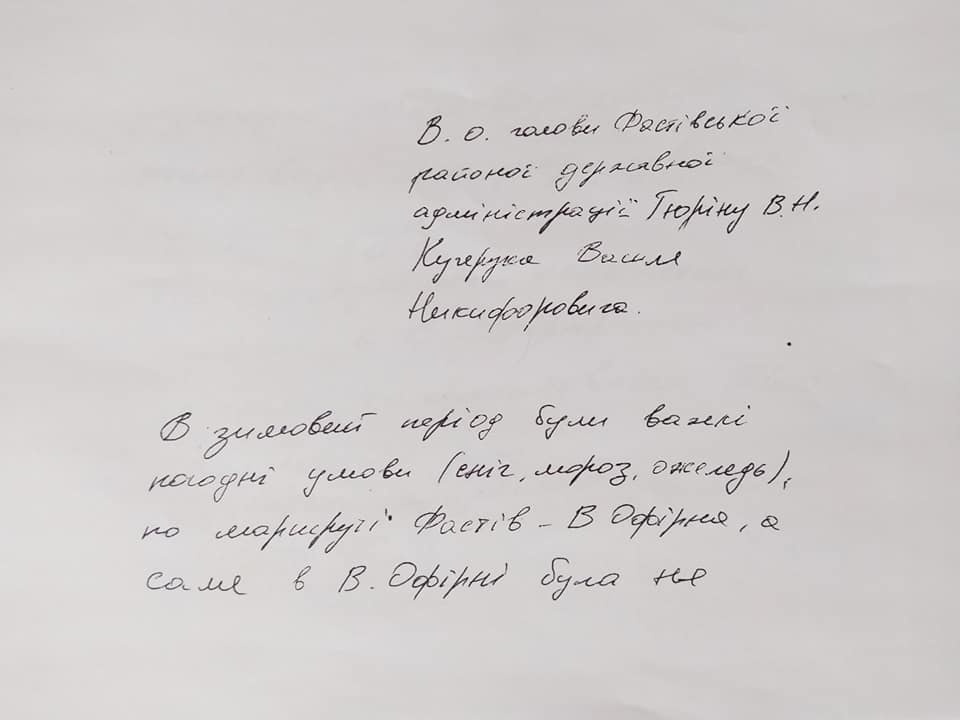 В. о. голови Фастівської
районої державної
адміністрації Тюріну В.Н.
Кучерука Василя
Никифоровича.
В зимовий період були важкі
погодні умови (сніг, мороз, ожеледь),
по маршруті Фастів - В Офірна, а
саме в В. Офірні була не